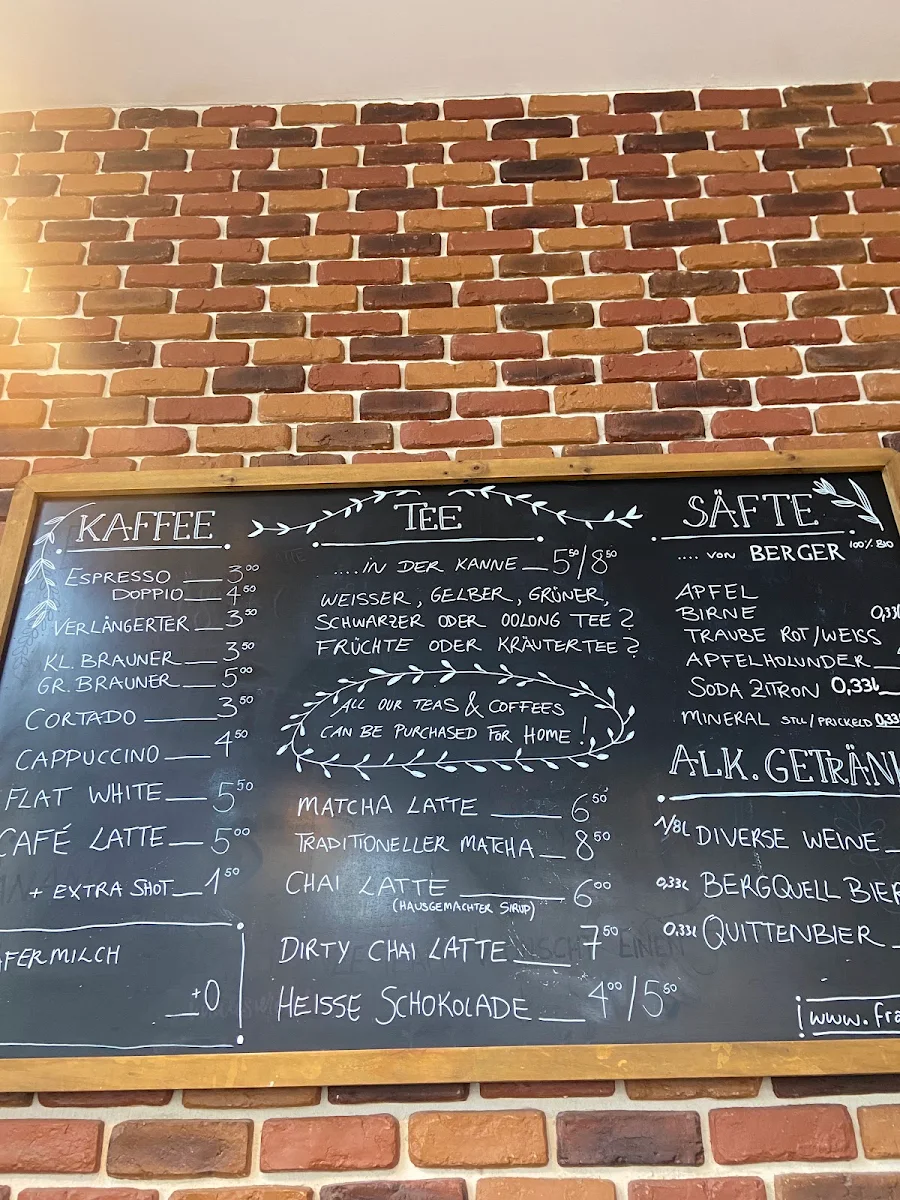 KAFFEE
ESPRESSO 3⁰⁰
DOPPIO 4⁵⁰
VERLÄNGERTER 3⁵⁰
KL. BRAUNER 3⁵⁰
GR. BRAUNER 5⁰⁰
CORTADO 3⁵⁰
CAPPUCCINO 4⁵⁰
FLAT WHITE 5⁵⁰
CAFÉ LATTE 5⁰⁰
+ EXTRA SHOT 1⁵⁰
AFERMILCH
+0
TEE
....IN DER KANNE 5⁵⁰/8⁵⁰
WEISSER, GELBER, GRÜNER,
SCHWARZER ODER OOLONG TEE?
FRÜCHTE ODER KRÄUTERTEE?
ALL OUR TEAS & COFFEES
CAN BE PURCHASED FOR HOME!
MATCHA LATTE 6⁵⁰
TRADITIONELLER MATCHA 8⁵⁰
CHAI LATTE 6⁰⁰
(HAUSGEMACHTER SIRUP)
DIRTY CHAI LATTE 7⁵⁰
HEISSE SCHOKOLADE 4⁰⁰/5⁵⁰
SÄFTE
.... VON BERGER 100% BIO
APFEL
BIRNE 0,33
TRAUBE ROT/WEISS
APFELHOLUNDER
SODA ZITRON 0,33L
MINERAL STILL/PRICKELD 0,33
ALK. GETRÄN
1/8L DIVERSE WEINE
0,33L BERGQUELL BIER
0,33L QUITTENBIER
www.fra